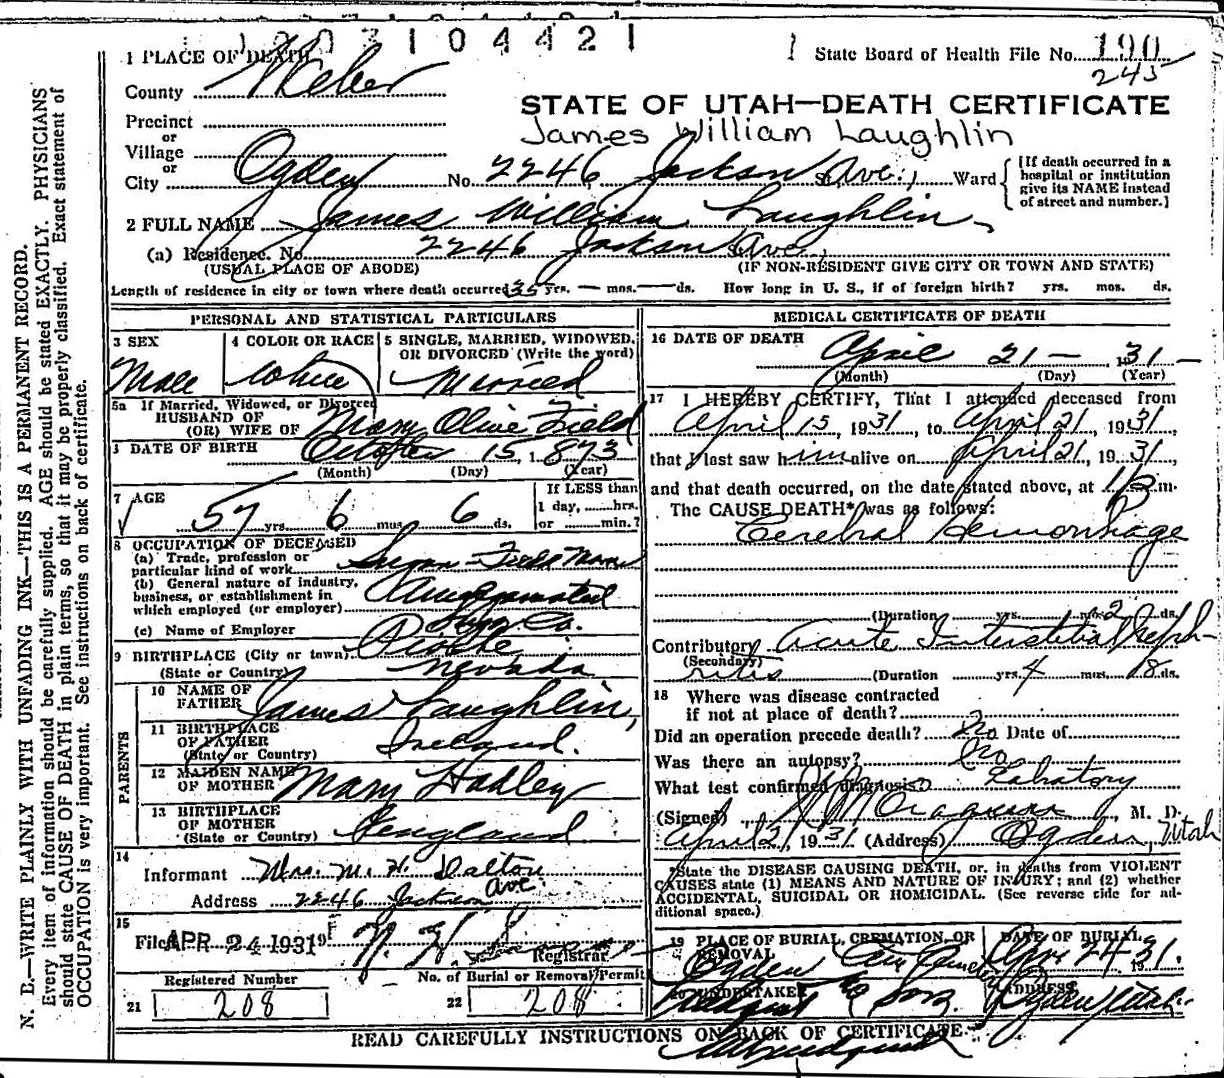 1 PLACE OF DEATH
104421
1 State Board of Health File No. 190
245
County Weber
STATE OF UTAH—DEATH CERTIFICATE
Precinct
or
James William Laughlin
Village
or
City Ogden No. 2246 Jackson St. Ave., Ward
(If death occurred in a hospital or institution give its NAME instead of street and number.)
2 FULL NAME James William Laughlin
(a) Residence. No. 2246 Jackson St. Ave.,
(USUAL PLACE OF ABODE) (IF NON-RESIDENT GIVE CITY OR TOWN AND STATE)
Length of residence in city or town where death occurred 35 yrs. — mos. — ds. How long in U. S., if of foreign birth? yrs. mos. ds.
PERSONAL AND STATISTICAL PARTICULARS
3 SEX
Male
4 COLOR OR RACE
White
5 SINGLE, MARRIED, WIDOWED, OR DIVORCED (Write the word)
Married
5a If Married, Widowed, or Divorced
HUSBAND OF
(OR) WIFE OF Mary Olive Field
DATE OF BIRTH October 15, 1873
(Month) (Day) (Year)
7 AGE
57 yrs. 6 mos. 6 ds.
If LESS than
1 day, hrs.
or min.?
8 OCCUPATION OF DECEASED
(a) Trade, profession or
particular kind of work Sugar - Field Man
(b) General nature of industry,
business, or establishment in
which employed (or employer) Amalgamated
Sugar Co.
(c) Name of Employer
9 BIRTHPLACE (City or town) Pioche
(State or Country) Nevada
PARENTS
10 NAME OF
FATHER James Laughlin,
11 BIRTHPLACE
OF FATHER
(State or Country) Ireland.
12 MAIDEN NAME
OF MOTHER Mary Hadley
13 BIRTHPLACE
OF MOTHER
(State or Country) England
14
Informant Mrs. M. H. Dalton
Address 2246 Jackson Ave.
15
Filed APR 24 1931 19
Registrar
Registered Number
21 208
No. of Burial or Removal Permit
22 208
MEDICAL CERTIFICATE OF DEATH
16 DATE OF DEATH
April 21 — , 1931 —
(Month) (Day) (Year)
17 I HEREBY CERTIFY, That I attended deceased from
April 15, 1931, to April 21, 1931,
that I last saw him alive on April 21, 1931,
and that death occurred, on the date stated above, at m.
The CAUSE DEATH* was as follows:
Cerebral Hemorrhage
(Duration yrs. mos. 2 ds.
Contributory Acute Interstitial Neph-
(Secondary) ritis (Duration yrs. 4 mos. 18 ds.
18 Where was disease contracted
if not at place of death?
Did an operation precede death? No Date of
Was there an autopsy? No
What test confirmed diagnosis? Labratory
(Signed) , M. D.
April 21, 1931 (Address) Ogden, Utah
*State the DISEASE CAUSING DEATH, or, in deaths from VIOLENT
CAUSES state (1) MEANS AND NATURE OF INJURY; and (2) whether
ACCIDENTAL, SUICIDAL OR HOMICIDAL. (See reverse side for ad-
ditional space.)
19 PLACE OF BURIAL, CREMATION, OR REMOVAL
Ogden
DATE OF BURIAL
Apr. 24 1931.
20 UNDERTAKER
Lindquist & Sons.
ADDRESS
Ogden, Utah.
READ CAREFULLY INSTRUCTIONS ON BACK OF CERTIFICATE.
N. B.—WRITE PLAINLY WITH UNFADING INK—THIS IS A PERMANENT RECORD.
Every item of information should be carefully supplied. AGE should be stated EXACTLY. PHYSICIANS
should state CAUSE OF DEATH in plain terms, so that it may be properly classified. Exact statement of
OCCUPATION is very important. See instructions on back of certificate.